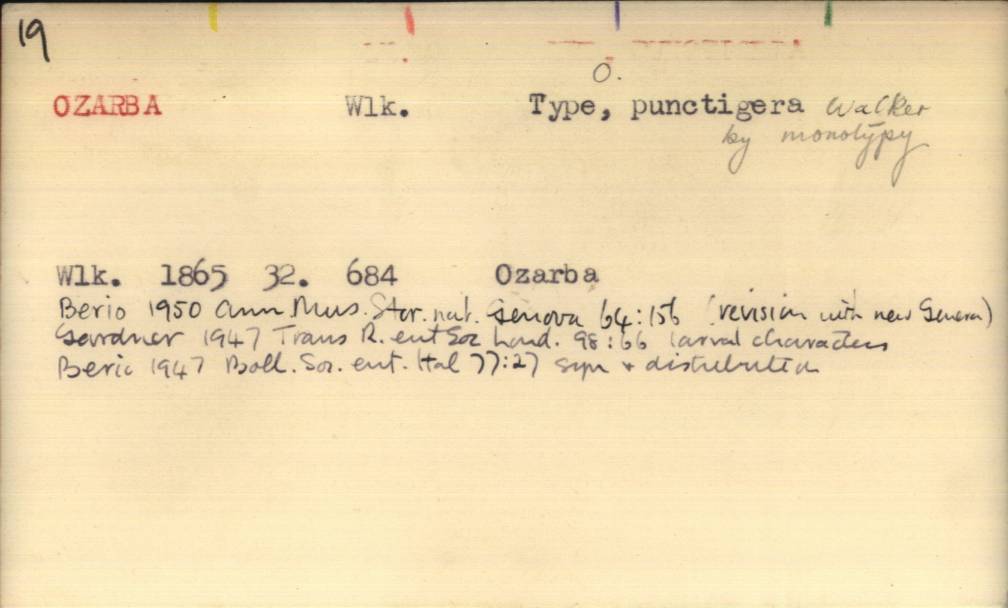 19
O.
OZARBA Wlk. Type, punctigera Walker
by monotypy
Wlk. 1865 32. 684 Ozarba
Berio 1950 Ann. Mus. Stor. nat. Genova 64:156 (revision with new Genera)
Gardner 1947 Trans R. ent Soc Lond. 98:66 larval characters
Berio 1947 Boll. Soc. ent. Ital 77:27 syn + distribution